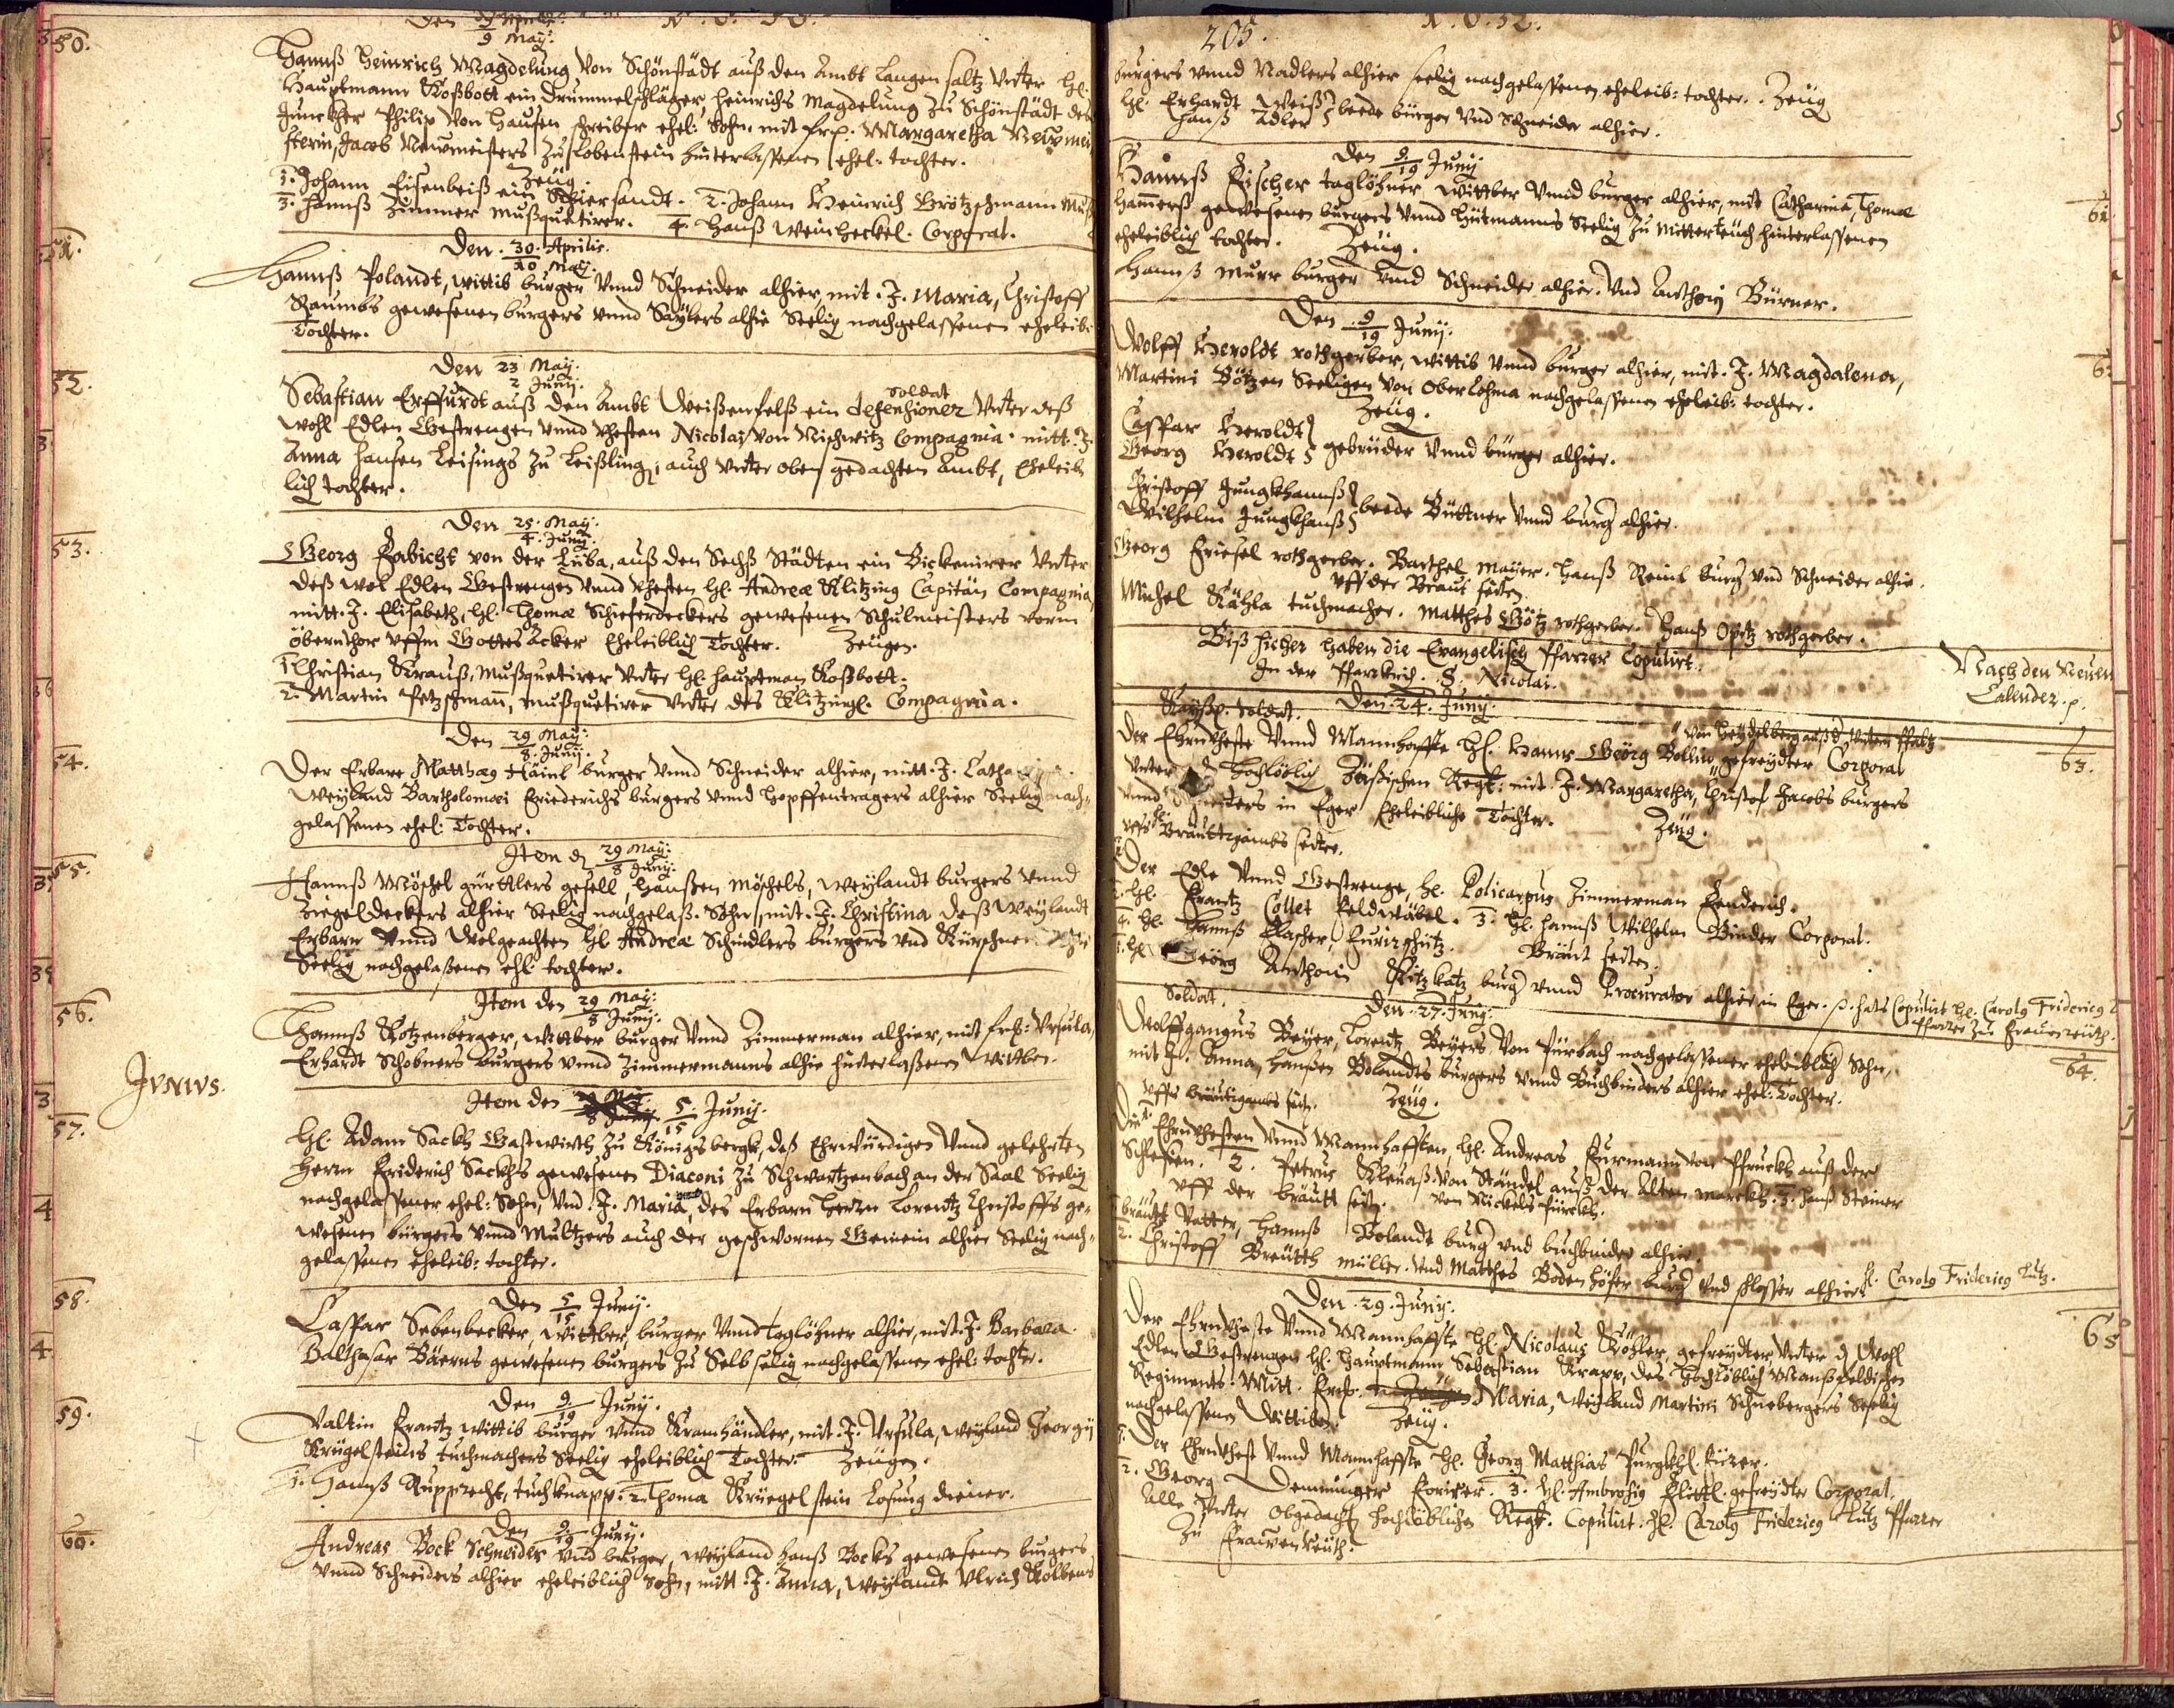 50.
Den 29 Aprilis.
9 May:
Hannß Heinrich Magdelung Von Schönstädt auß den Ambt Langen saltz Vnter Hl.
Hauptmann Roßbott ein Drummelschläger, Heinrichs Magdelung zu Schönstädt des
Junckher Philip Von Hausen schreiber ehel: Sohn. mit Frp. Margaretha Newmei
sterin, Jacob Newmeisters zu Lobenstein hinterlassenen ehel. tochter.
Zeüg.
1. Johann Eisenbeiß ein Schiersandt. 2. Johann Heinrich Grötzschmann Muß
3. Hannß Zimmer Mußquetirer. 4. Hanß Weinheckel. Corporal.
51.
Den 30. Aprilis.
10 May.
Hannß Polandt, wittib burger Vnnd Schneider alhier, mit J. Maria, Christoff
Raumbs gewesenen burgers vnnd Saylers alhie Seelig nachgelassenen eheleib:
Tochter.
52.
Den 23 May.
2 Junij.
Soldat
Sebastian Erffurdt auß den Ambt Weißenfelß ein defensioner Vnter deß
Wohl Edlen Gestrengen Vnnd Vhesten Nicolaj Von Nischwitz Compagnia mitt. J.
Anna Hansen Leisings zu Leißling, auch Vnter oben gedachten Ambt, Eheleib
lich tochter.
53.
Den 25. May.
4. Junij.
Georg Habicht von der Luba, auß den Sechß Städten ein Bickenirer Vnter
deß wol Edlen Gestrengen Vnnd Vhesten Hl. Andreæ Klitzing Capitän Compagnia,
mitt. J. Elisabeth, Hl. Thomæ Schieferdeckers gewesenen Schulmeisters vorm
öbernthor vffm Gottes Acker Eheleiblich Tochter. Zeügen.
1. Christian Krauß, Mußquetirer Vnter Hl. Hauptman Roßbott.
2. Martin Petzschman, mußquetirer Vnter des Klitzingl. Compagnia.
54.
Den 29 May:
8. Junij.
Der Erbare Matthæg Häinl burger Vnnd Schneider alhier, mitt. J. Catha
Weyland Bartholomæi Friederichs burgers vnnd Hopffentragers alhier Seelig nach=
gelassenen ehel: Tochter.
55.
Item d 29 May:
8 Junij:
Hannß Möschel gürttlers gesell, Hanßen Möschels, weylandt burgers vnnd
Ziegeldeckers alhier Seelig nachgelaß. Sohn, mit. J. Christina deß weylandt
Erbarn Vnnd Wolgeachten Hl Andreæ Schindlers burgers vnd Kürschner
Seelig nachgelaßenen ehl: tochter.
56.
Item den 29 May:
8 Junij:
Hannß Rotzenberger, wittber burger Vnnd Zimmerman alhier, mit Frp: Vrsula,
Erhardt Schobners burgers vnnd Zimmermanns alhie hinterlaßenen wittben.
JVNIVS.
57.
Item den 5 Junij.
15
Hl. Adam Sackh Gastwirth zu Königsbergk, deß Ehrwürdigen Vnnd gelehrten
Herrn Friderich Sackhs gewesenen Diaconi zu Schwartzenbach an der Saal Seelig
nachgelassener ehel: Sohn, Vnd. J. Maria, des Erbarn Herrn Lorentz Christoffs ge=
wesenen bürgers Vnnd Mültzers auch der geschwornen Gemein alhier Seelig nach=
gelassenen eheleib: tochter.
58.
Den 5 Junij.
15
Casspar Sebenbecker, wittber, burger Vnnd taglöhner alhier, mit. J. Barbara.
Balthasar Bäerns gewesenen burgers zu Selb seelig nachgelassenen ehel: tochter.
59.
Den 9. Junij.
19
Valtin Frantz wittib burger Vnnd Kramhändler, mit. J. Vrsula, weyland Georgij
Krügelsteins tuchmachers Seelig eheleiblich Tochter. Zeügen.
1. Hannß Rupprecht, tuchknapp. 2. Thoma Krüegelstein Losung diener.
60.
Den 9. Junij.
19
Andreas Bock Schneider Vnd burger, weyland Hanß Bocks gewesenen burgers
Vnnd Schneiders alhier eheleiblich Sohn, mitt. J. Anna, weylandt Vlrich Kolbens
205.
burgers vnnd Nadlers alhier seelig nachgelassenen eheleib: tochter. Zeüg
Hl. Erhardt Weiß
Hanß Adler } beede bürger Vnd Schneider alhier.
61.
Den 9. Junij:
19
Hannß Fischer taglöhner, wittber Vnnd burger alhier, mit Catharina, Thomæ
Hamerß gewesenen burgers Vnnd Hüttmanns Seelig zu Mitterteüch hinterlassenen
eheleiblich tochter. Zeüg.
Hannß Murr burger Vnnd Schneider alhier. Vnd Anthonj Bürner.
62
Den 9 Junij:
19
Wolff Heroldt rothgerber, wittib Vnnd burger alhier, mit. J. Magdalena,
Martini Götzen Seeligen Von Oberlohma nachgelassenen eheleib: tochter.
Zeüg.
Casspar Heroldt
Georg Heroldt } gebrüder Vnnd bürger alhier.
Christoff Jungkhannß
Wilhelm Jungkhanß } beede Büttner Vnnd burg alhier.
Georg Friesel rothgerber. Barthel Mayer. Hanß Reinl burg Vnd Schneider alhie.
Vff der Braut seiten.
Michel Kähla tuchmacher. Matthes Götz rothgerber. Hanß Opitz rothgerber.
Biß hieher haben die Evangelisch Pfarrer Copulirt.
In der Pfarrkirch. S. Nicolai.
Nach den Neuen
Calender. p.
Kayßl. Soldat. Den. 24. Junij.
von Heydelberg auß d Vntern Pfaltz
63.
Der Ehrnvheste Vnnd Mannhaffte Hl. Hanns Geörg Bollin gefreydter Corporal
Vnter d Hochlöblich Regt: mit. J. Margaretha, Christof Jacobs burgers
Vnnd in Eger Eheleibliche Tochter. Zeüg.
Vffs Breuttigambs seiten.
Der Edle Vnnd Gestrenge, Hl. Policarpus Zimmerman Fenderich.
2. Hl. Frantz Collet Feldwäbel. 3. Hl. Hannß Wilhelm Binder Corporal.
4. Hl. Hannß Flascher, Furirschütz. Bräut seiten.
1. Hl Geörg Anthoni Kitzkatz burg Vnnd Procurator alhier in Eger. p. hats Copulirt Hl. Carolg Fridericg L
Pfarrer zur Frauenreuth.
Soldat. Den. 27. Junij.
64.
Wolffgangus Beyer, Lorentz Beyers Von Pürbach nachgelassener eheleiblich Sohn,
mit J. Anna, Hanßen Bolandts burgers Vnnd Buchbinders alhier ehel: Tochter.
Vffs bräutigambs seit. Zeüg.
Die Ehrnvhesten Vnnd Mannhafften, Hl. Andreas Furmann von Pfruckh auß der
Schlesien. 2. Petrus Kleuaß Von Ständel auß der Alten Marckh. 3. Hanß Steiner
Vff der bräutt seit. von Nickels fürckh.
1. bräutt Vatter, Hannß Bolandt burg vnd buchbinder alhier.
2. Christoff Breütth müller. Vnd Matthes Bodenhöfer burg Vnd schlosser alhier. Hl. Carolg Fridericg Lutz.
Den. 29. Junij.
65
Der Ehrnvheste Vnnd Mannhaffte Hl. Nicolaus Köhler, gefreydter, Vnter d Wohl
Edlen Gestrengen Hl. Hauptmann Sebastian Krapp, des Hochlöblich Manßfeldischen
Regiments. Mitt. Frp. Maria, weyland Martini Schnebergers Seelig
nachgelassenen Wittiben. Zeüg.
1. Der Ehrnvhest Vnnd Mannhaffte Hl. Georg Matthias Purgkhl. Fürer.
2. Georg Denninger Forirer. 3. Hl. Ambrosig Plettl. gefreydter Corporal.
Alle Vnter obgedacht Hochlöblichen Regt. Copulirt: Hl. Carolg Fridericg Lutz Pfarrer
Zu Frawenreuth.